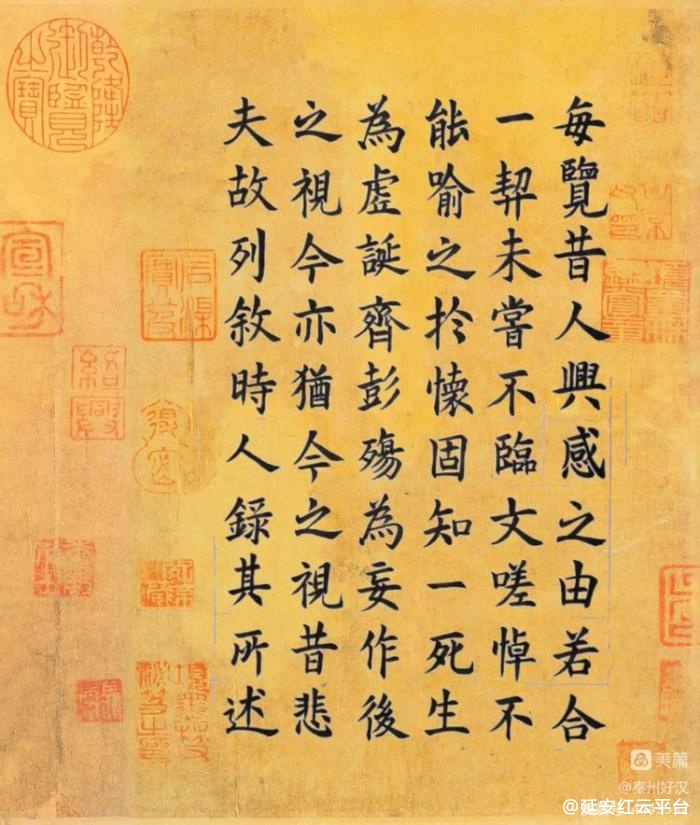 每覽昔人興感之由若合
一契未嘗不臨文嗟悼不
能喻之於懷固知一死生
為虛誕齊彭殤為妄作後
之視今亦猶今之視昔悲
夫故列敘時人錄其所述
乾隆御覽之寶
宣和
石渠寶笈
紹興
美篇
@秦州好汉
@延安红云平台